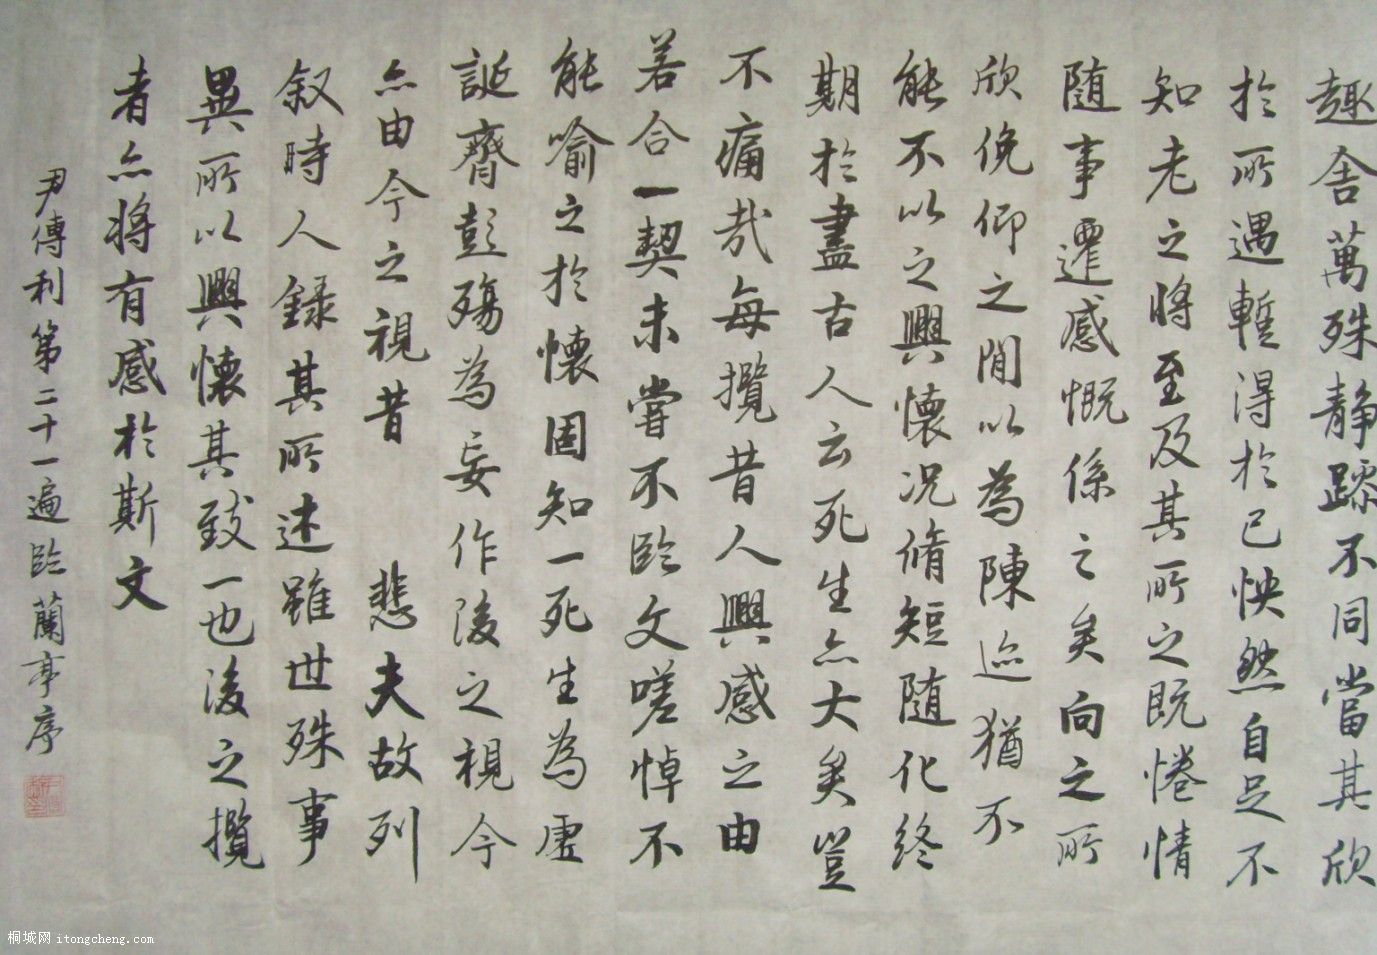 趣舍萬殊静躁不同當其欣
於所遇暫得於己怏然自足不
知老之將至及其所之既惓情
随事遷感慨係之矣向之所
欣俛仰之閒以為陳迹猶不
能不以之興懷况脩短随化終
期於盡古人云死生亦大矣豈
不痛哉每攬昔人興感之由
若合一契未嘗不臨文嗟悼不
能喻之於懷固知一死生為虛
誕齊彭殤為妄作後之視今
亦由今之視昔 悲夫故列
叙時人録其所述雖世殊事
異所以興懷其致一也後之攬
者亦將有感於斯文
尹傳利第二十一遍臨蘭亭序
桐城网 itongcheng.com